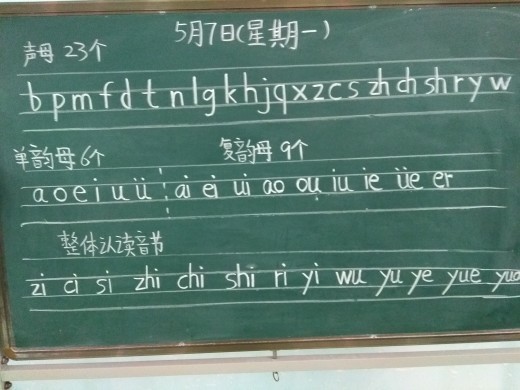 5月7日(星期一)
声母 23个
b p m f d t n l g k h j q x z c s zh ch sh r y w
单韵母6个 复韵母9个
a o e i u ü ai ei ui ao ou iu ie üe er
整体认读音节
zi ci si zhi chi shi ri yi wu yu ye yue